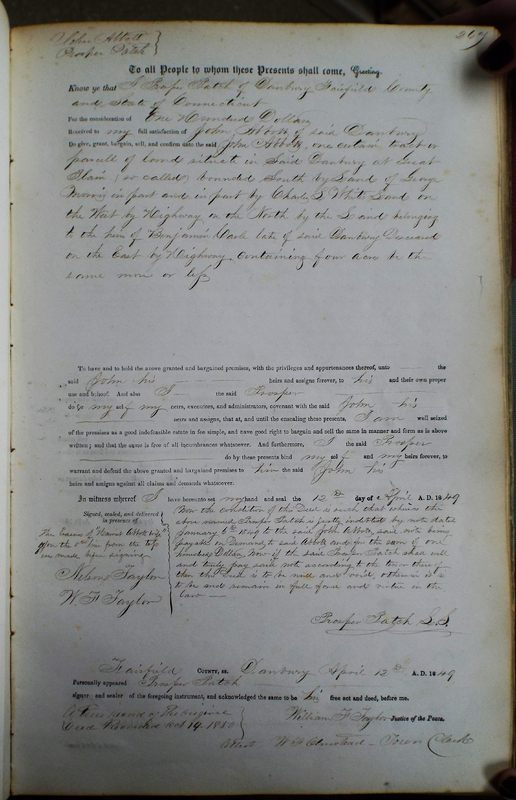 John Abbott
Prosper Patch
267
To all People to whom these Presents shall come, Greeting.
Know ye that I Prosper Patch of Danbury Fairfield County
and State of Connecticut
For the consideration of One Hundred Dollars
Received to my full satisfaction of John Abbott of said Danbury
Do give, grant, bargain, sell, and confirm unto the said John Abbott, one certain tract or
parcell of land situate in said Danbury at Great
Plain (so called) bounded South by Land of George
Morris in part and in part by Charles S. White Land on
the West by Highway on the North by the Land belonging
to the heirs of Benjamin late of said Danbury Deceased
on the East by Highway containing four acres be the
same more or less
To have and to hold the above granted and bargained premises, with the privileges and appurtenances thereof, unto the
said John his heirs and assigns forever, to his and their own proper
use and behoof. And also I the said Prosper
do for my self my heirs, executors, and administrators, covenant with the said John his
heirs and assigns, that at, and until the ensealing these presents, I am well seized
of the premises as a good indefeasible estate in fee simple, and have good right to bargain and sell the same in manner and form as is above
written; and that the same is free of all incumbrances whatsoever. And furthermore, I the said Prosper
do by these presents bind my self and my heirs forever, to
warrant and defend the above granted and bargained premises to him the said John his
heirs and assigns against all claims and demands whatsoever.
In witness whereof I have hereunto set my hand and seal the 12th day of April A. D. 1849
Signed, sealed, and delivered
in presence of
The of Abbott
upon the line from the top
made before signing
Nelson Taylor
W. F. Taylor
Now the condition of this Deed is such that whereas the
above named Prosper Patch is justly indebted by note dated
January 6th 1849 to the said John Abbott, said note being
payable on Demand, to said Abbott and for the sum of one
hundred Dollars, Now if the said Prosper Patch shall well
and truly pay said note according to the tenor thereof
then this Deed is to be null and void, otherwise is
to be and remain in full force and virtue in the
law
Prosper Patch L.S.
Fairfield County, ss. Danbury April 12th A. D. 1849
Personally appeared Prosper Patch
signer and sealer of the foregoing instrument, and acknowledged the same to be his free act and deed, before me.
William F Taylor Justice of the Peace.
A true record of the original
Deed Received Oct 19. 1850
Attest W F Olmstead Town Clerk